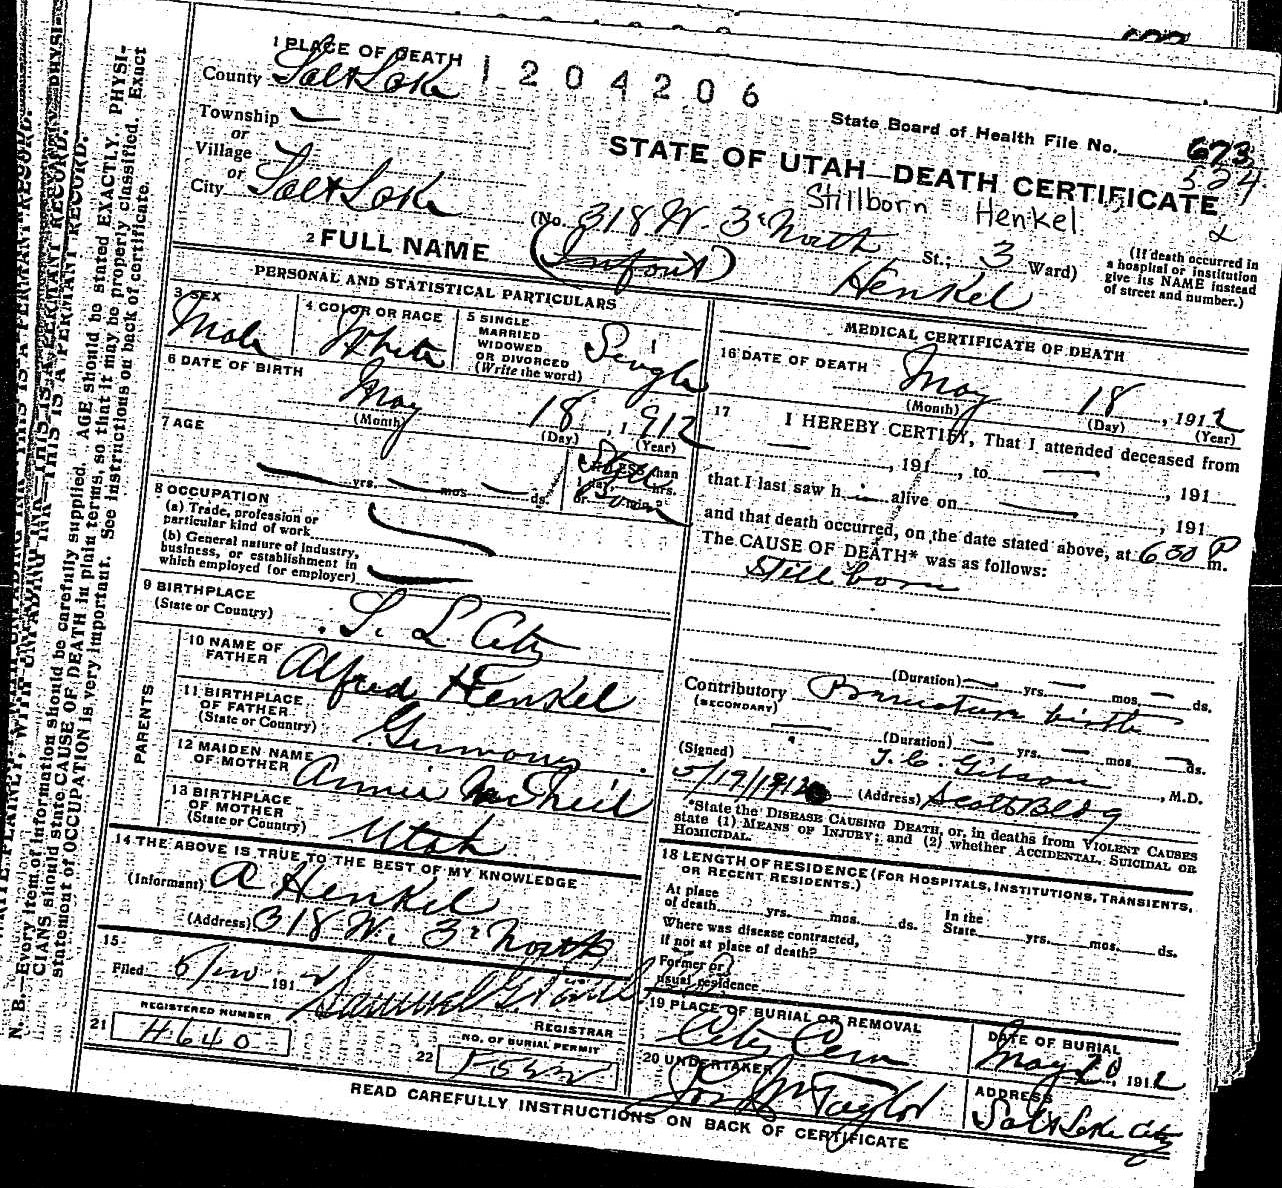 1204206
1 PLACE OF DEATH
County Salt Lake
Township
or
Village
or
City Salt Lake
State Board of Health File No. 673
524
STATE OF UTAH—DEATH CERTIFICATE
Stillborn = Henkel
(No. 318 W. 3d North St.; 3 Ward)
(If death occurred in
a hospital or institution
give its NAME instead
of street and number.)
2 FULL NAME (Infant) Henkel
PERSONAL AND STATISTICAL PARTICULARS
3 SEX
Male
4 COLOR OR RACE
White
5 SINGLE
MARRIED
WIDOWED
OR DIVORCED
(Write the word)
Single
6 DATE OF BIRTH
May 18, 1912
(Month) (Day) (Year)
7 AGE
yrs. mos. ds.
If LESS than
1 day, hrs.
or min.?
Still
Born
8 OCCUPATION
(a) Trade, profession or
particular kind of work
(b) General nature of industry,
business, or establishment in
which employed (or employer)
9 BIRTHPLACE
(State or Country)
S. L. City
PARENTS
10 NAME OF
FATHER
Alfred Henkel
11 BIRTHPLACE
OF FATHER
(State or Country)
Germany
12 MAIDEN NAME
OF MOTHER
Annie McNeil
13 BIRTHPLACE
OF MOTHER
(State or Country)
Utah
14 THE ABOVE IS TRUE TO THE BEST OF MY KNOWLEDGE
(Informant) A Henkel
(Address) 318 W. 3d North
15
Filed 191
REGISTRAR
REGISTERED NUMBER
21 H640
NO. OF BURIAL PERMIT
22
MEDICAL CERTIFICATE OF DEATH
16 DATE OF DEATH
May 18, 1912
(Month) (Day) (Year)
17 I HEREBY CERTIFY, That I attended deceased from
, 191 , to , 191
that I last saw h i alive on , 191
and that death occurred, on the date stated above, at 630 P m.
The CAUSE OF DEATH* was as follows:
Still born
(Duration) yrs. mos. ds.
Contributory Premature birth
(SECONDARY)
(Duration) yrs. mos. ds.
(Signed) T. C. Gibson, M.D.
5/19/1912 (Address) Scott Bldg
*State the DISEASE CAUSING DEATH, or, in deaths from VIOLENT CAUSES
state (1) MEANS OF INJURY; and (2) whether ACCIDENTAL, SUICIDAL OR
HOMICIDAL.
18 LENGTH OF RESIDENCE (FOR HOSPITALS, INSTITUTIONS, TRANSIENTS,
OR RECENT RESIDENTS.)
At place
of death yrs. mos. ds.
In the
State yrs. mos. ds.
Where was disease contracted,
if not at place of death?
Former or
usual residence
19 PLACE OF BURIAL OR REMOVAL
City Cem
DATE OF BURIAL
May 20, 1912
20 UNDERTAKER
Jos Wm Taylor
ADDRESS
Salt Lake City
READ CAREFULLY INSTRUCTIONS ON BACK OF CERTIFICATE
N. B.—Every item of information should be carefully supplied. AGE should be stated EXACTLY. PHYSI-
CIANS should state CAUSE OF DEATH in plain terms, so that it may be properly classified. Exact
statement of OCCUPATION is very important. See instructions on back of certificate.